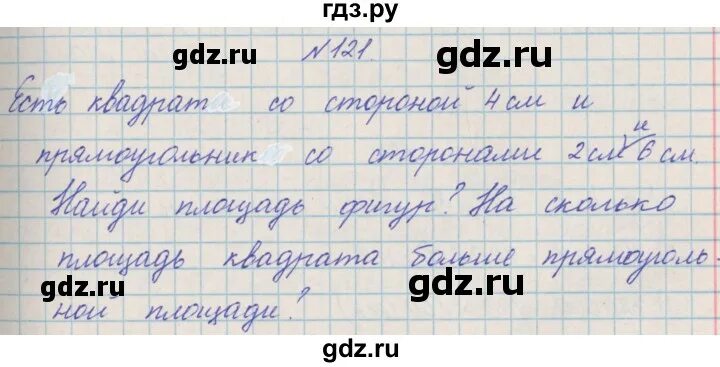 гдз.ру
gdz.ru gdz.ru
№121.
Есть квадрат со стороной 4 см и
прямоугольник со сторонами 2 см и 6 см.
Найди площадь фигур? На сколько
площадь квадрата больше прямоуголь-
gdz.ru gdz.ru
ной площади?
gdz.ru